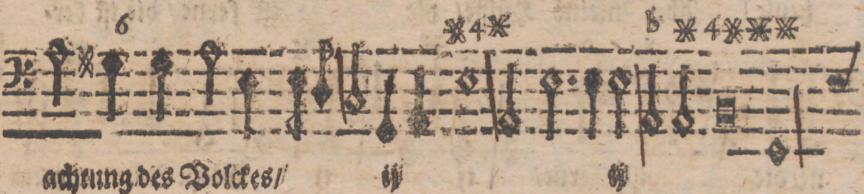 6 ※4※ b ※4※※※
achtung des Volckes/ ij ij